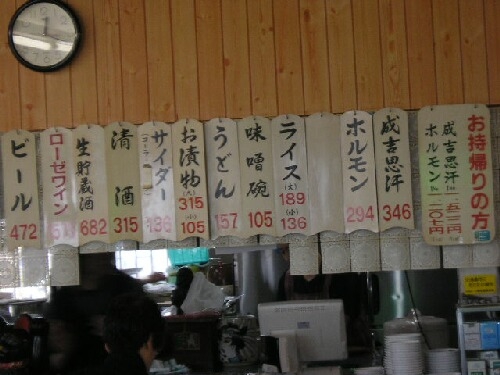 お持帰りの方
成吉思汗
ホルモン
成吉思汗
346
ホルモン
294
ライス
(大)
189
(小)
136
味噌碗
105
うどん
157
お漬物
(大)
315
(小)
105
サイダー
清酒
315
生貯蔵酒
682
ローゼワイン
ビール
472